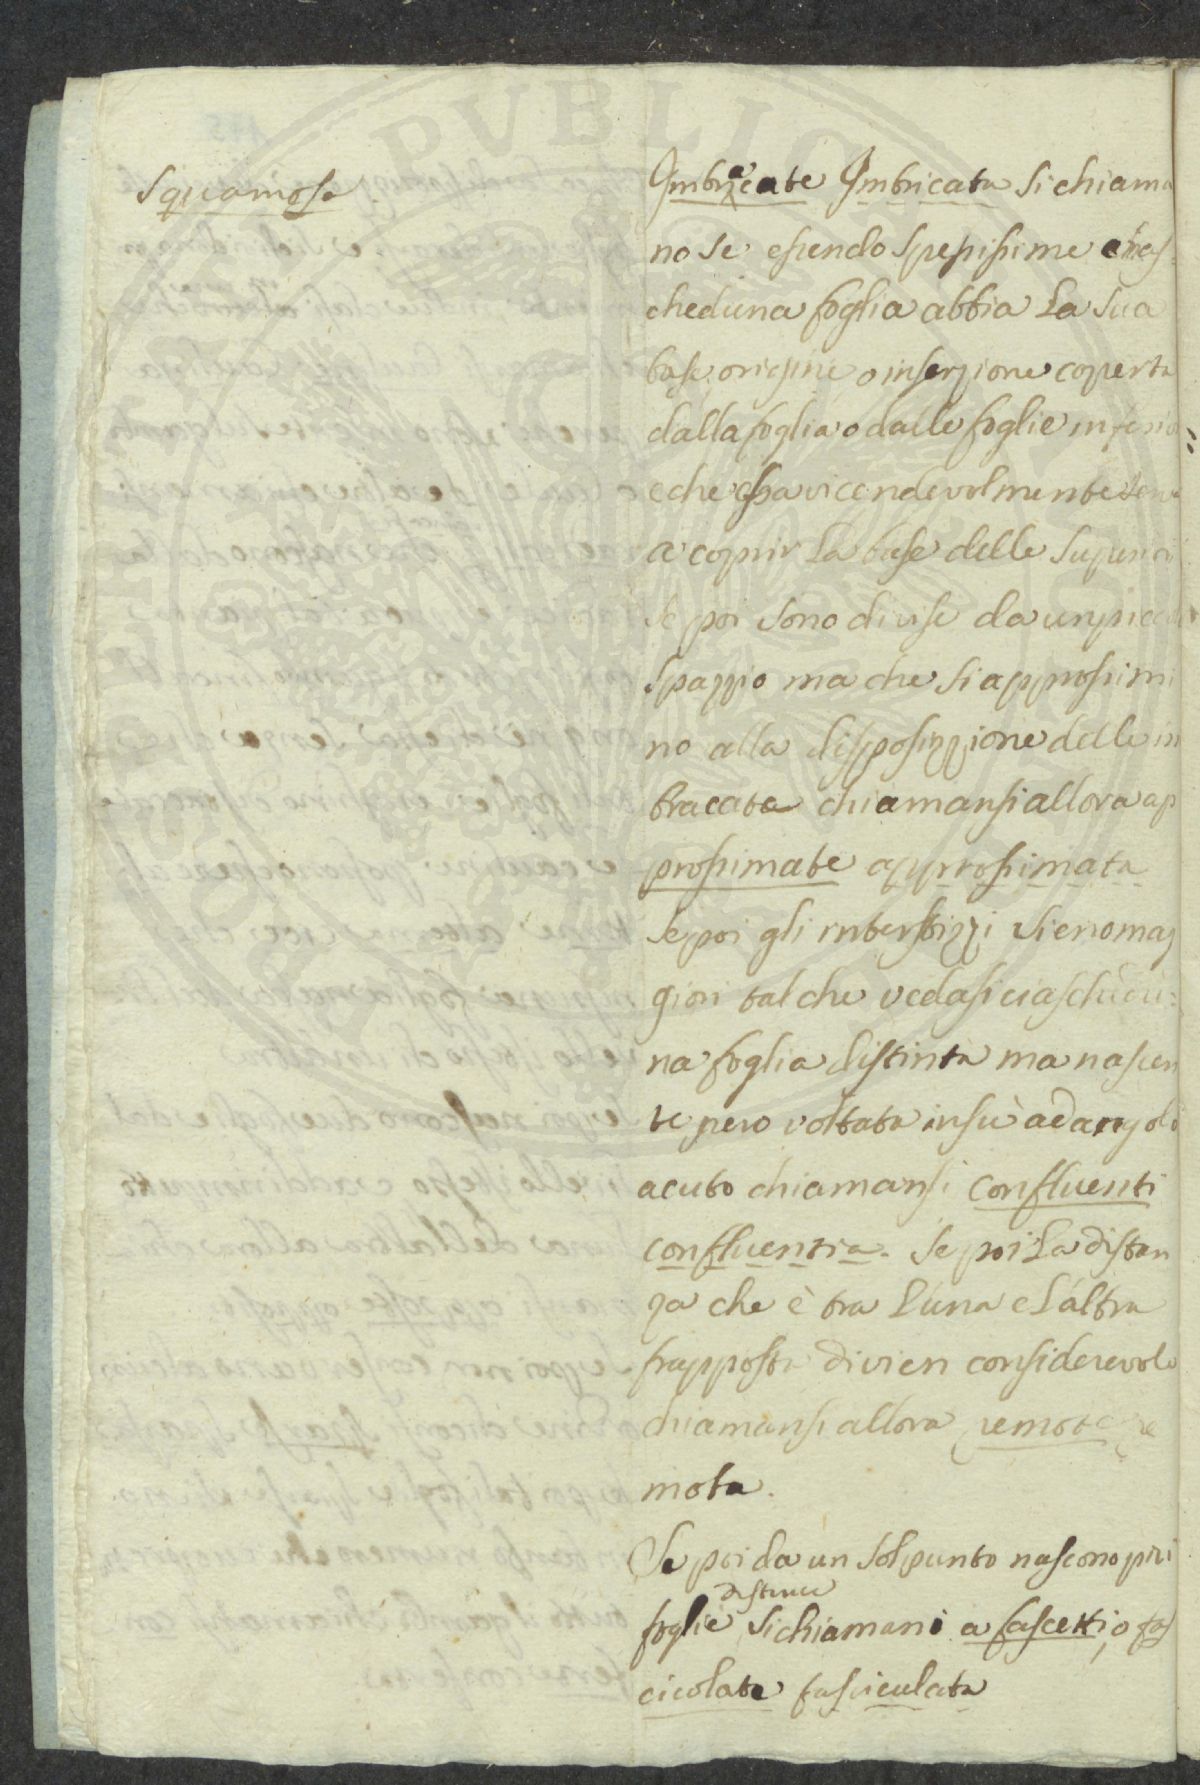 Squamose
Imbracate Imbricata si chiama
no se essendo spessissime cias
cheduna foglia abbia la sua
base origine o inserzione coperta
dalla foglia o dalle foglie inferio
e che essa vicendevolmente
a coprir la base delle superiori
se poi sono divise da un picco
spazzio ma che si approssimi
no alla disposizzione delle im
bracate chiamansi allora ap
prossimate approssimata
Se poi gli interstizzi sieno mag
giori talche vedasi ciaschedu=
na foglia distinta ma nascen
te pero voltata in sù ad angolo
acuto chiamansi confluenti
confluentia. Se poi la distan
za che è tra l'una e l'altra
frapposta divien considerevole
chiamansi allora remote re
mota.
Se poi da un sol punto nascono più
distinte
foglie si chiamano a fascetti, o fas
cicolate fasciculata